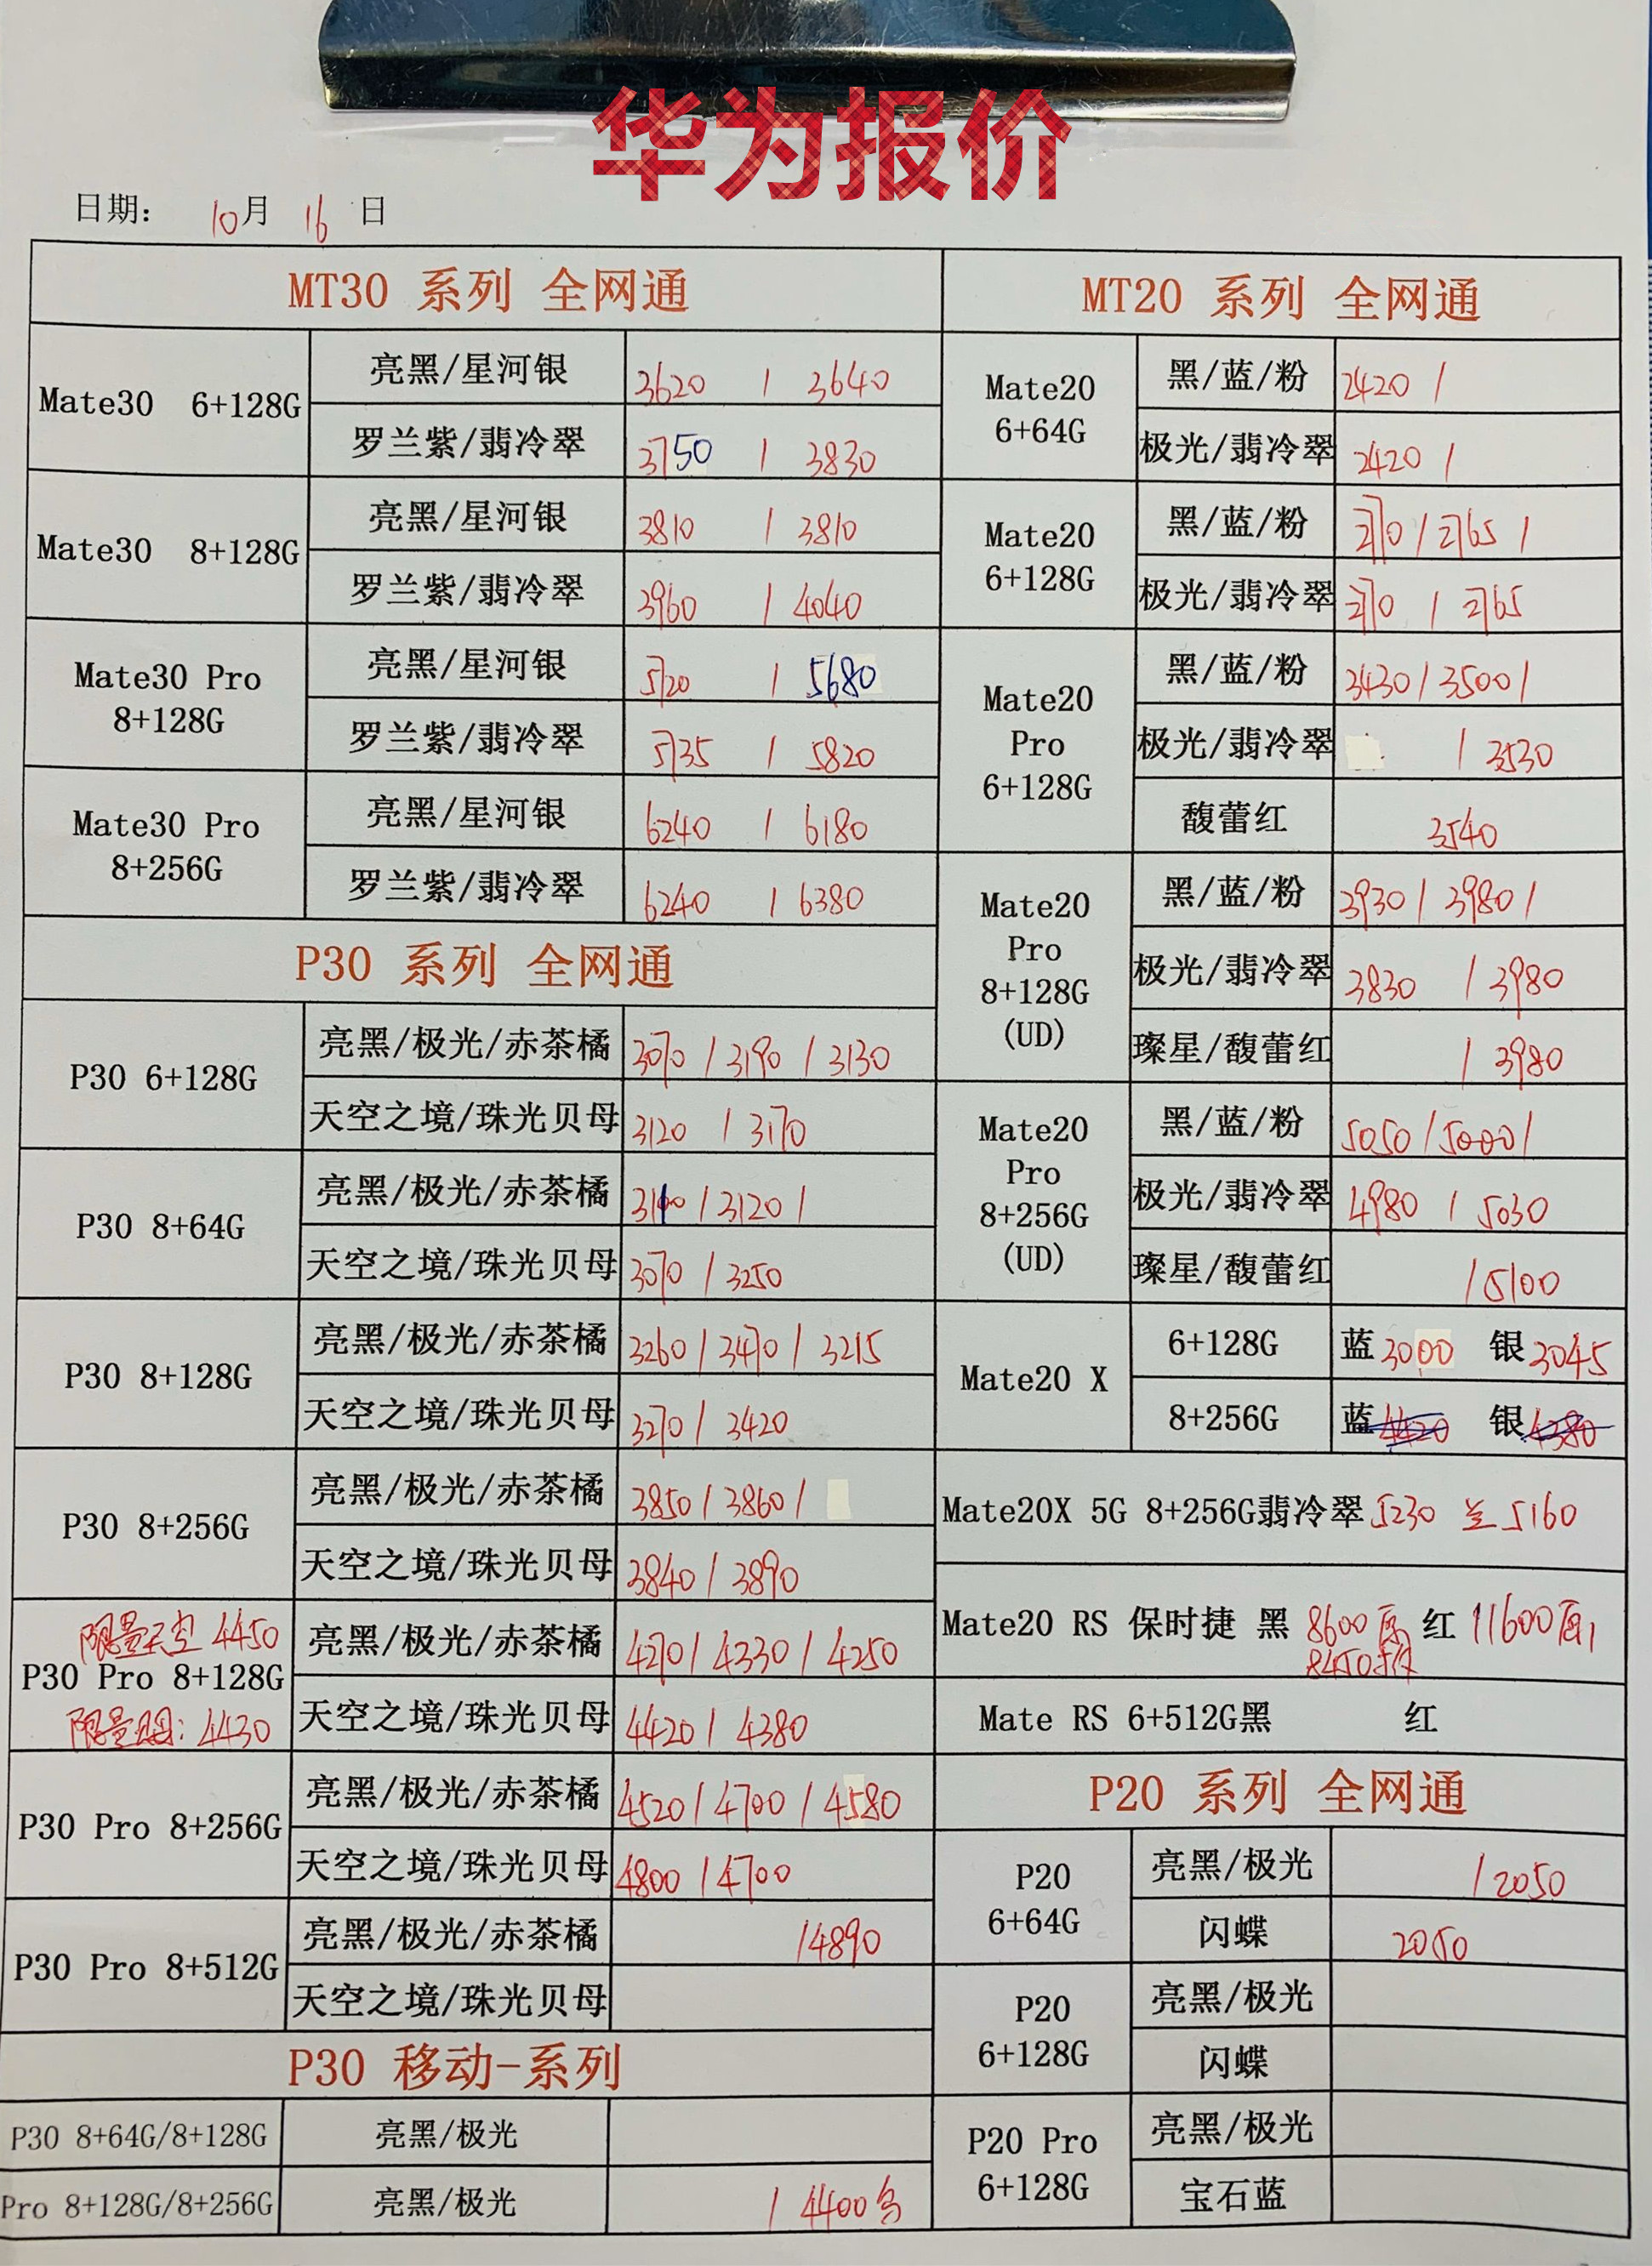 华为报价
日期： 10月 16 日
MT30 系列 全网通
Mate30 6+128G
亮黑/星河银 3620 / 3640
罗兰紫/翡冷翠 3750 / 3830
Mate30 8+128G
亮黑/星河银 3810 / 3810
罗兰紫/翡冷翠 3960 / 4040
Mate30 Pro
8+128G
亮黑/星河银 5720 / 5680
罗兰紫/翡冷翠 5735 / 5820
Mate30 Pro
8+256G
亮黑/星河银 6240 / 6180
罗兰紫/翡冷翠 6240 / 6380
P30 系列 全网通
P30 6+128G
亮黑/极光/赤茶橘 3070 / 3190 / 3130
天空之境/珠光贝母 3120 / 3170
P30 8+64G
亮黑/极光/赤茶橘 / 3120 /
天空之境/珠光贝母 3070 / 3250
P30 8+128G
亮黑/极光/赤茶橘 3260 / 3470 / 3215
天空之境/珠光贝母 3270 / 3420
P30 8+256G
亮黑/极光/赤茶橘 3850 / 3860 /
天空之境/珠光贝母 3840 / 3890
限量天空 4450
P30 Pro 8+128G
限量: 4430
亮黑/极光/赤茶橘 4270 / 4330 / 4250
天空之境/珠光贝母 4420 / 4380
P30 Pro 8+256G
亮黑/极光/赤茶橘 4520 / 4700 / 4580
天空之境/珠光贝母 4800 / 4700
P30 Pro 8+512G
亮黑/极光/赤茶橘 / 4890
天空之境/珠光贝母
P30 移动-系列
P30 8+64G/8+128G 亮黑/极光
Pro 8+128G/8+256G 亮黑/极光 / 4400
MT20 系列 全网通
Mate20
6+64G
黑/蓝/粉 2420 /
极光/翡冷翠 2420 /
Mate20
6+128G
黑/蓝/粉 2770 / 2765 /
极光/翡冷翠 2770 / 2765
Mate20
Pro
6+128G
黑/蓝/粉 3430 / 3500 /
极光/翡冷翠 / 3530
馥蕾红 3540
Mate20
Pro
8+128G
(UD)
黑/蓝/粉 3930 / 3980 /
极光/翡冷翠 3830 / 3980
璨星/馥蕾红 / 3980
Mate20
Pro
8+256G
(UD)
黑/蓝/粉 5050 / 5000 /
极光/翡冷翠 4980 / 5030
璨星/馥蕾红 / 5100
Mate20 X
6+128G 蓝 3000 银 3045
8+256G 蓝 4420 银 4380
Mate20X 5G 8+256G翡冷翠 5230 兰 5160
Mate20 RS 保时捷 黑 8600原 红 11600原
8450
Mate RS 6+512G黑 红
P20 系列 全网通
P20
6+64G
亮黑/极光 / 2050
闪蝶 2050
P20
6+128G
亮黑/极光
闪蝶
P20 Pro
6+128G
亮黑/极光
宝石蓝